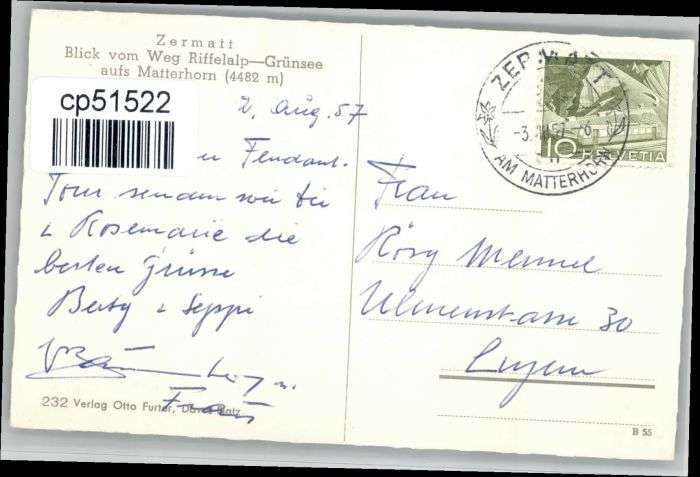 Zermatt
Blick vom Weg Riffelalp—Grünsee
aufs Matterhorn (4482 m)
cp51522
2. Aug. 57
Fendant-
Tour senden wir Dir
& Rosemarie die
besten Grüsse
Berty & Seppi
232 Verlag Otto Furter, Davos-Platz
ZERMATT
-3. 57-6
AM MATTERHORN
10 HELVETIA
Frau
Rösy
Ulmenstrasse 30
Luzern
B 55